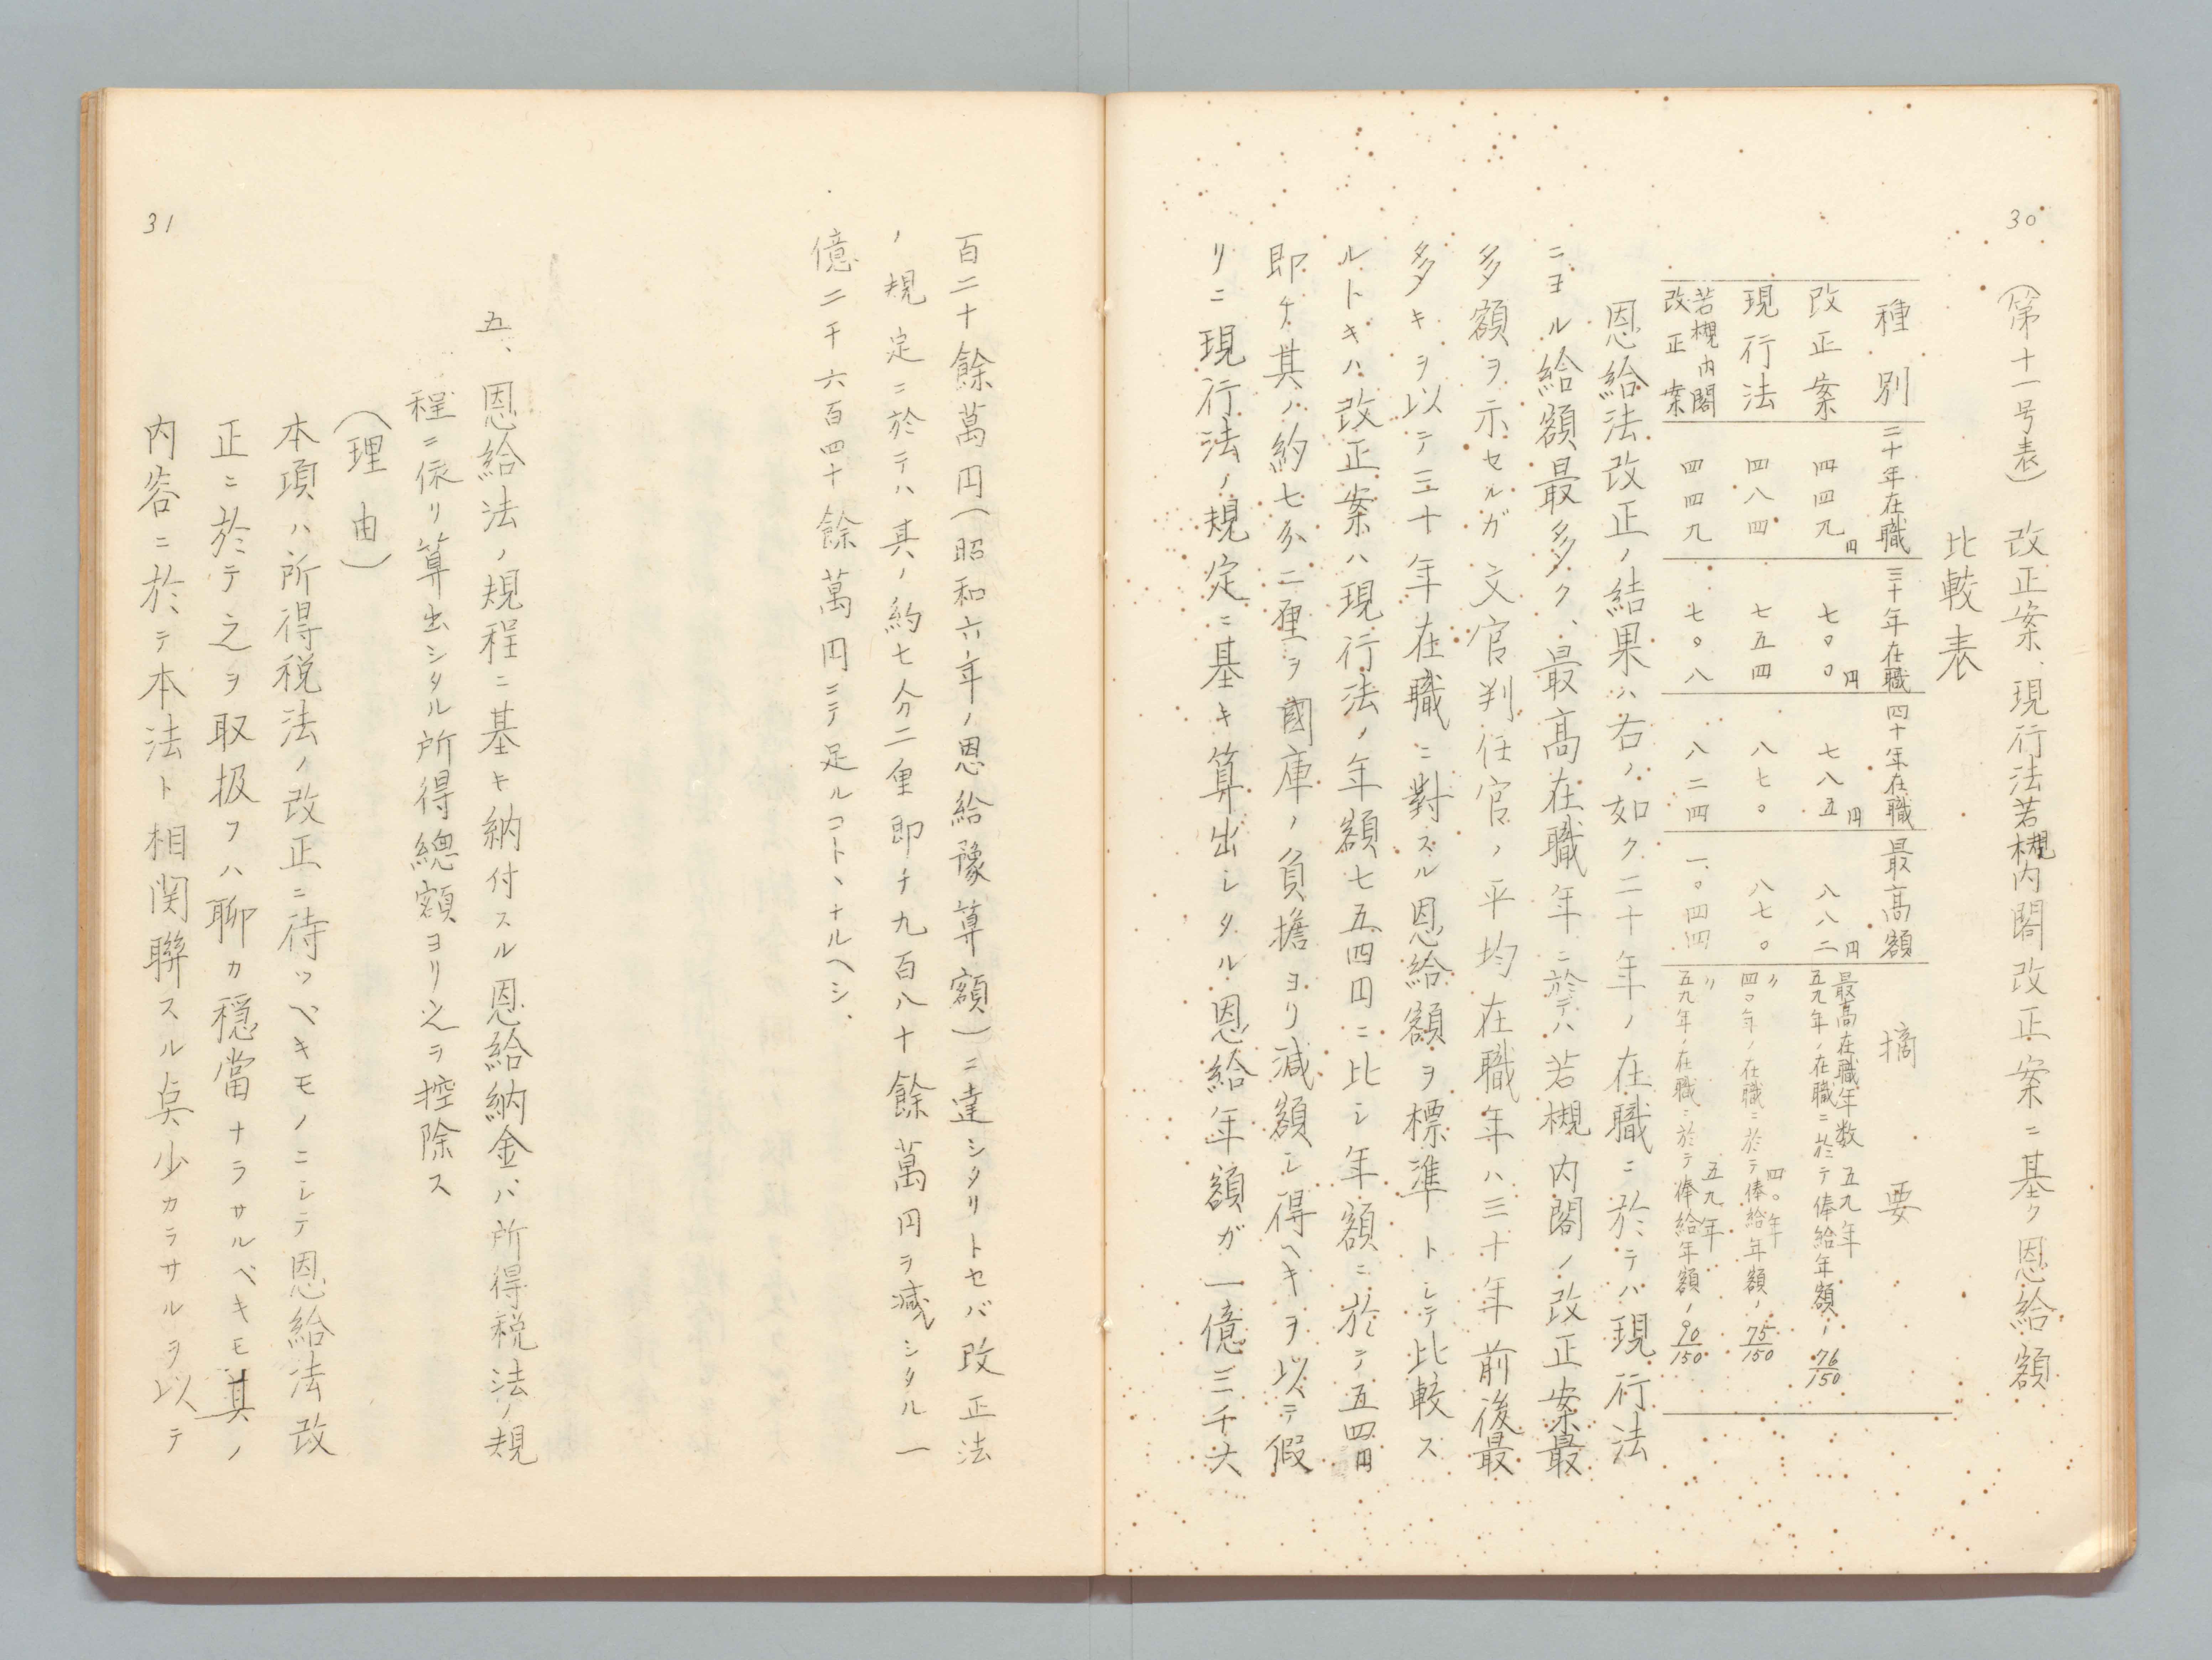 30
(第十一号表) 改正案、現行法若槻内閣改正案ニ基ク恩給額
比較表
種別 二十年在職 三十年在職 四十年在職 最高額 摘要
改正案 四四九円 七〇〇円 七八五円 八八二円 最高在職年数 五九年
五九年ノ在職ニ於テ俸給年額ノ76/150
現行法 四八四 七五四 八七〇 八七〇 〃 四〇年
四〇年ノ在職ニ於テ俸給年額ノ75/150
若槻内閣改正案 四四九 七〇八 八二四 一、〇四四 〃 五九年
五九年ノ在職ニ於テ俸給年額ノ90/150
恩給法改正ノ結果ハ右ノ如ク二十年ノ在職ニ於テハ現行法
ニヨル給額最多ク、最高在職年ニ於テハ若槻内閣ノ改正案最
多額ヲ示セルガ文官判任官ノ平均在職年ハ三十年前後最
多キヲ以テ三十年在職ニ對スル恩給額ヲ標準トシテ比較ス
ルトキハ改正案ハ現行法ノ年額七五四円ニ比シ年額ニ於テ五四円
即チ其ノ約七分二厘ヲ國庫ノ負擔ヨリ減額シ得ヘキヲ以テ假
リニ現行法ノ規定ニ基キ算出シタル恩給年額ガ一億三千六
百二十餘萬円(昭和六年ノ恩給豫算額)ニ達シタリトセバ改正法
ノ規定ニ於テハ其ノ約七分二厘即チ九百八十餘萬円ヲ減シタル一
億二千六百四十餘萬円ニテ足ルコトヽナルヘシ、
五、恩給法ノ規程ニ基キ納付スル恩給納金ハ所得税法ノ規
程ニ依リ算出シタル所得總額ヨリ之ヲ控除ス
(理由)
本項ハ所得税法ノ改正ニ待ツベキモノニシテ恩給法改
正ニ於テ之ヲ取扱フハ聊カ穏當ナラサルベキモ其ノ
内容ニ於テ本法ト相関聯スル点少カラサルヲ以テ
31